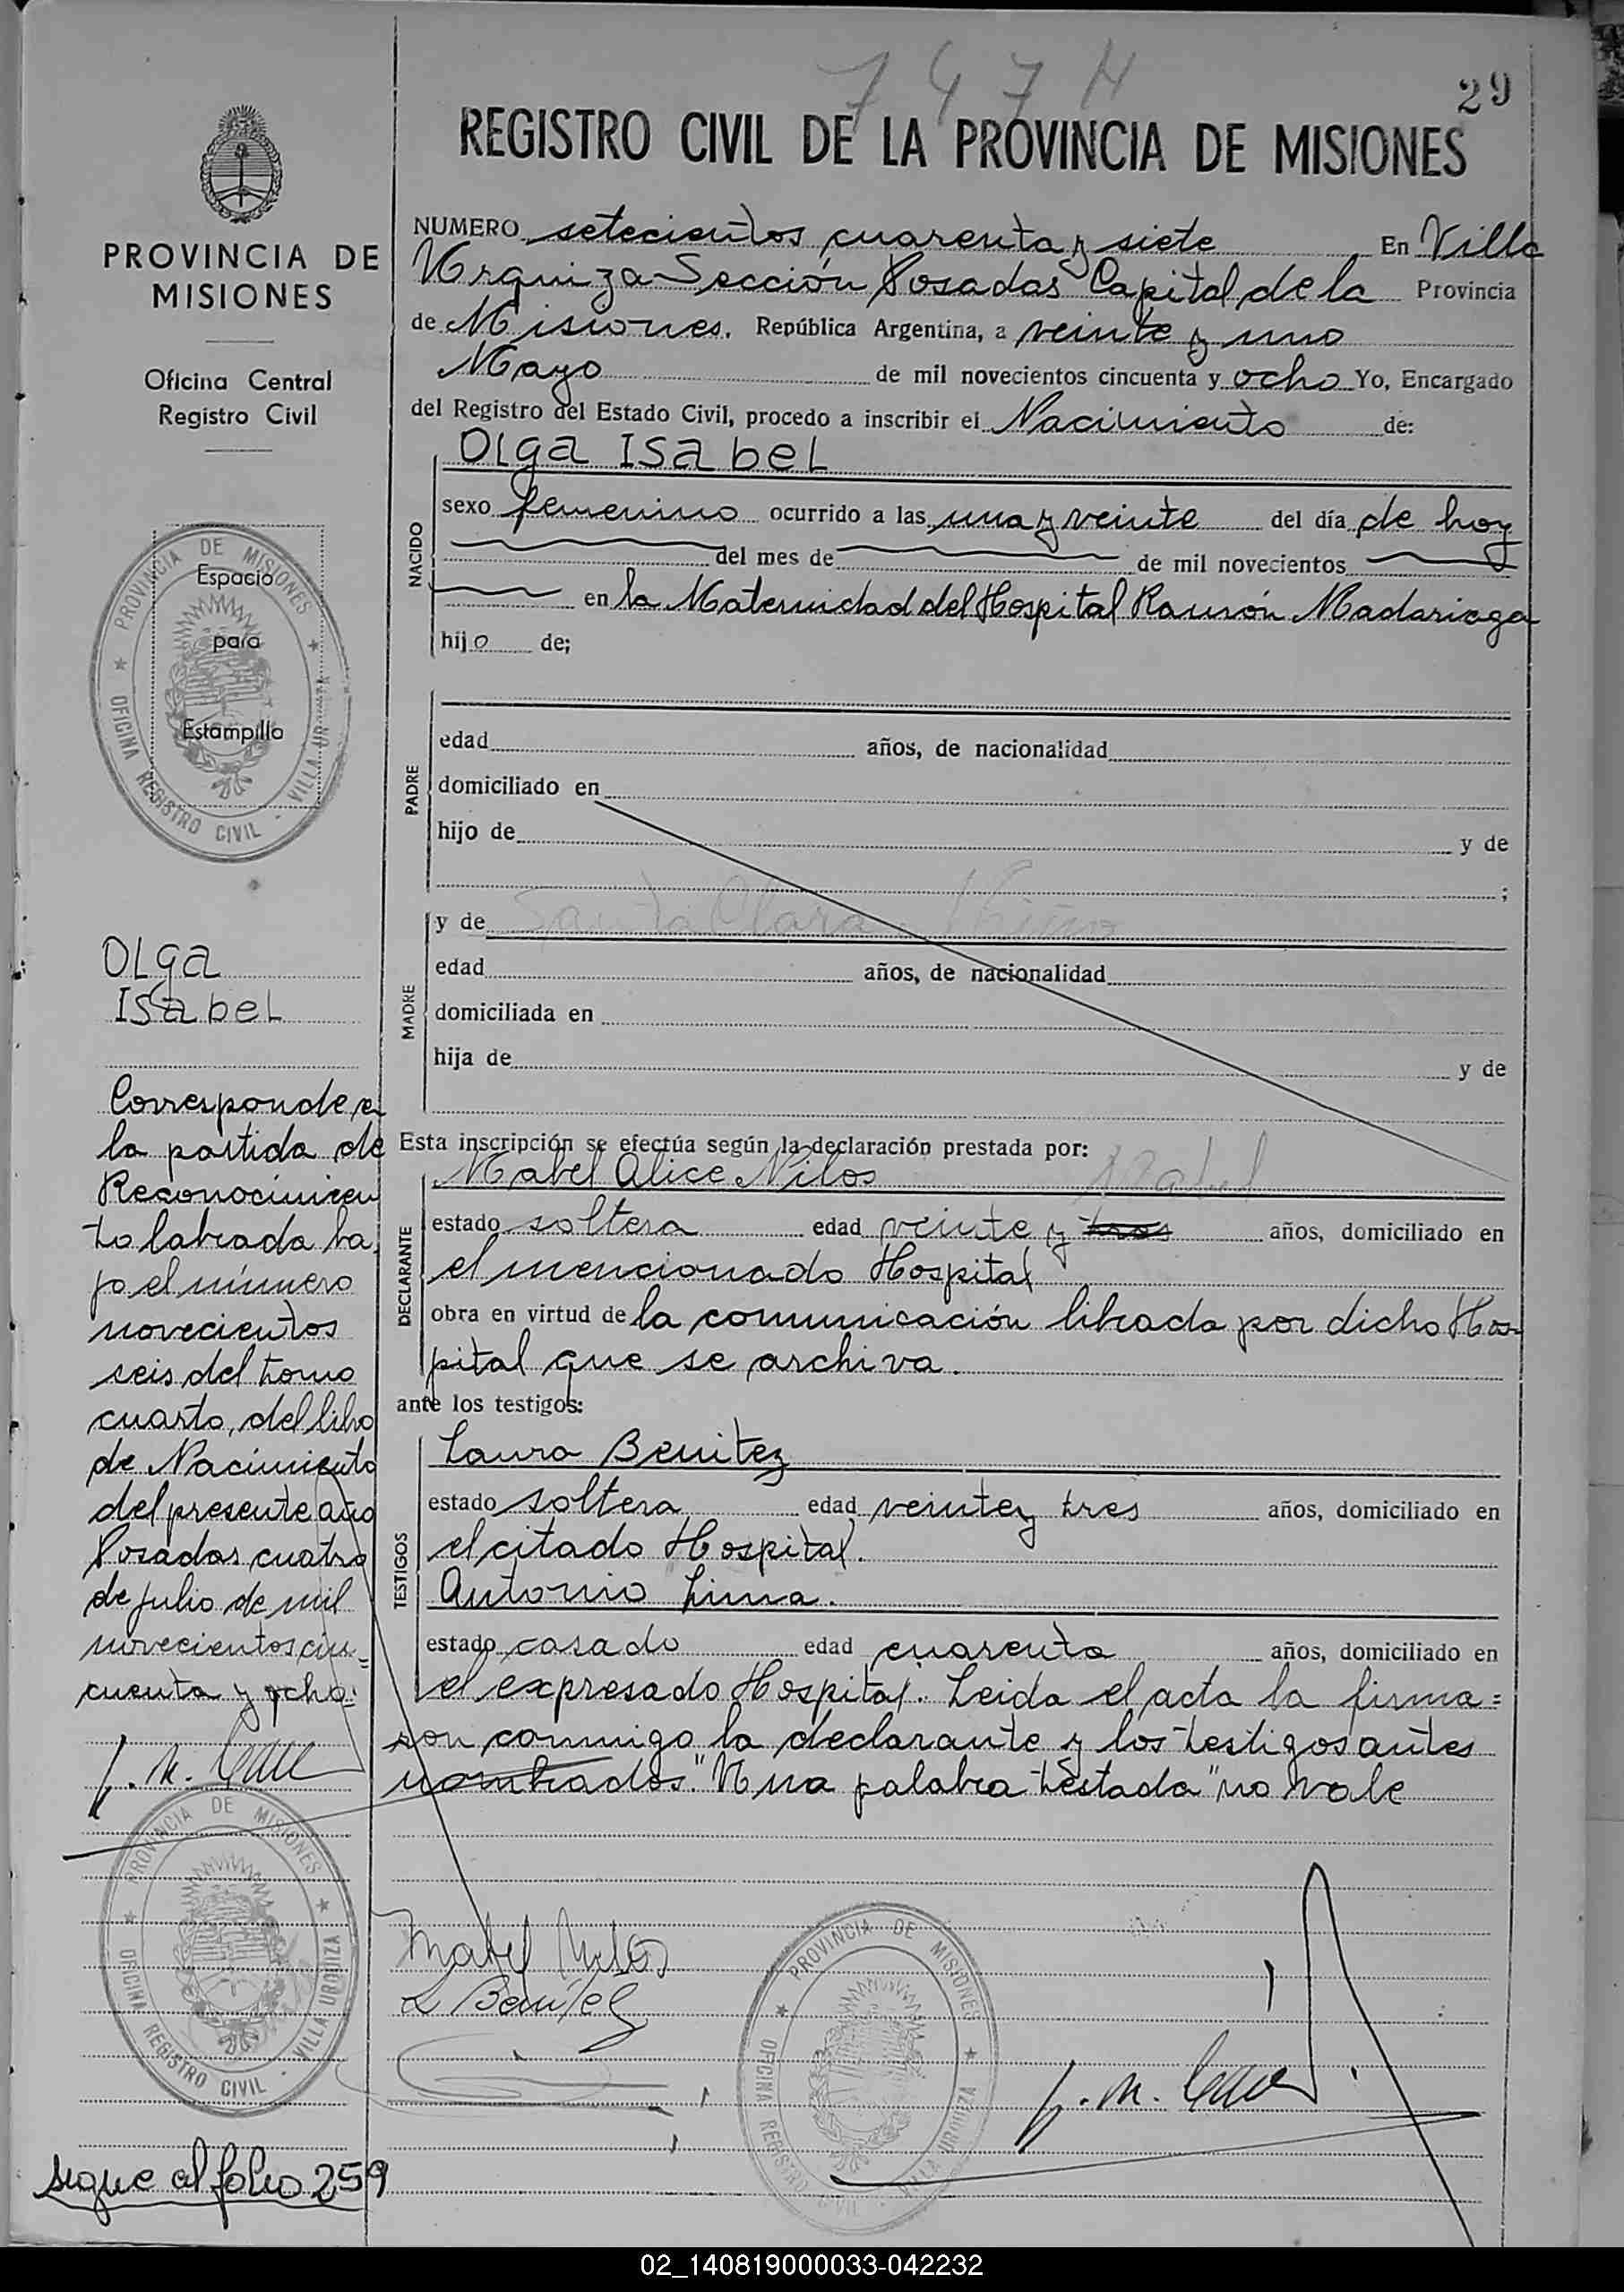 747 N
29
REGISTRO CIVIL DE LA PROVINCIA DE MISIONES
NUMERO setecientos cuarenta y siete En Villa
Urquiza Sección Posadas Capital de la Provincia
de Misiones. República Argentina, a veinte y uno
Mayo de mil novecientos cincuenta y ocho Yo, Encargado
del Registro del Estado Civil, procedo a inscribir el Nacimiento de:
OLga ISabeL
NACIDO
sexo femenino ocurrido a las una y veinte del día de hoy
del mes de de mil novecientos
en la Maternidad del Hospital Ramón Madariaga
hijo de;
PADRE
edad años, de nacionalidad
domiciliado en
hijo de y de
;
MADRE
y de Santa Clara
edad años, de nacionalidad
domiciliada en
hija de y de
Esta inscripción se efectúa según la declaración prestada por:
DECLARANTE
Mabel Alice Nilos
estado soltera edad veinte y tres años, domiciliado en
el mencionado Hospital
obra en virtud de la comunicación librada por dicho Hos-
pital que se archiva.
ante los testigos:
TESTIGOS
Laura Benitez
estado soltera edad veinte y tres años, domiciliado en
el citado Hospital.
Antonio Lima.
estado casado edad cuarenta años, domiciliado en
el expresado Hospital. Leida el acta la firma=
ron conmigo la declarante y los testigos antes
nombrados. "Una palabra testada" no vale
Mabel Nilos
L Benitez
PROVINCIA DE MISIONES
OFICINA REGISTRO CIVIL - VILLA URQUIZA
PROVINCIA DE
MISIONES
Oficina Central
Registro Civil
PROVINCIA DE MISIONES
OFICINA REGISTRO CIVIL - VILLA URQUIZA
Espacio
para
Estampilla
OLga
ISabeL
Corresponde a
la partida de
Reconocimien
to labrada ba
jo el número
novecientos
seis del tomo
cuarto, del libro
de Nacimiento
del presente año
Posadas cuatro
de julio de mil
novecientos cin=
cuenta y ocho.
PROVINCIA DE MISIONES
OFICINA REGISTRO CIVIL - VILLA URQUIZA
sigue al folio 259
02_140819000033-042232